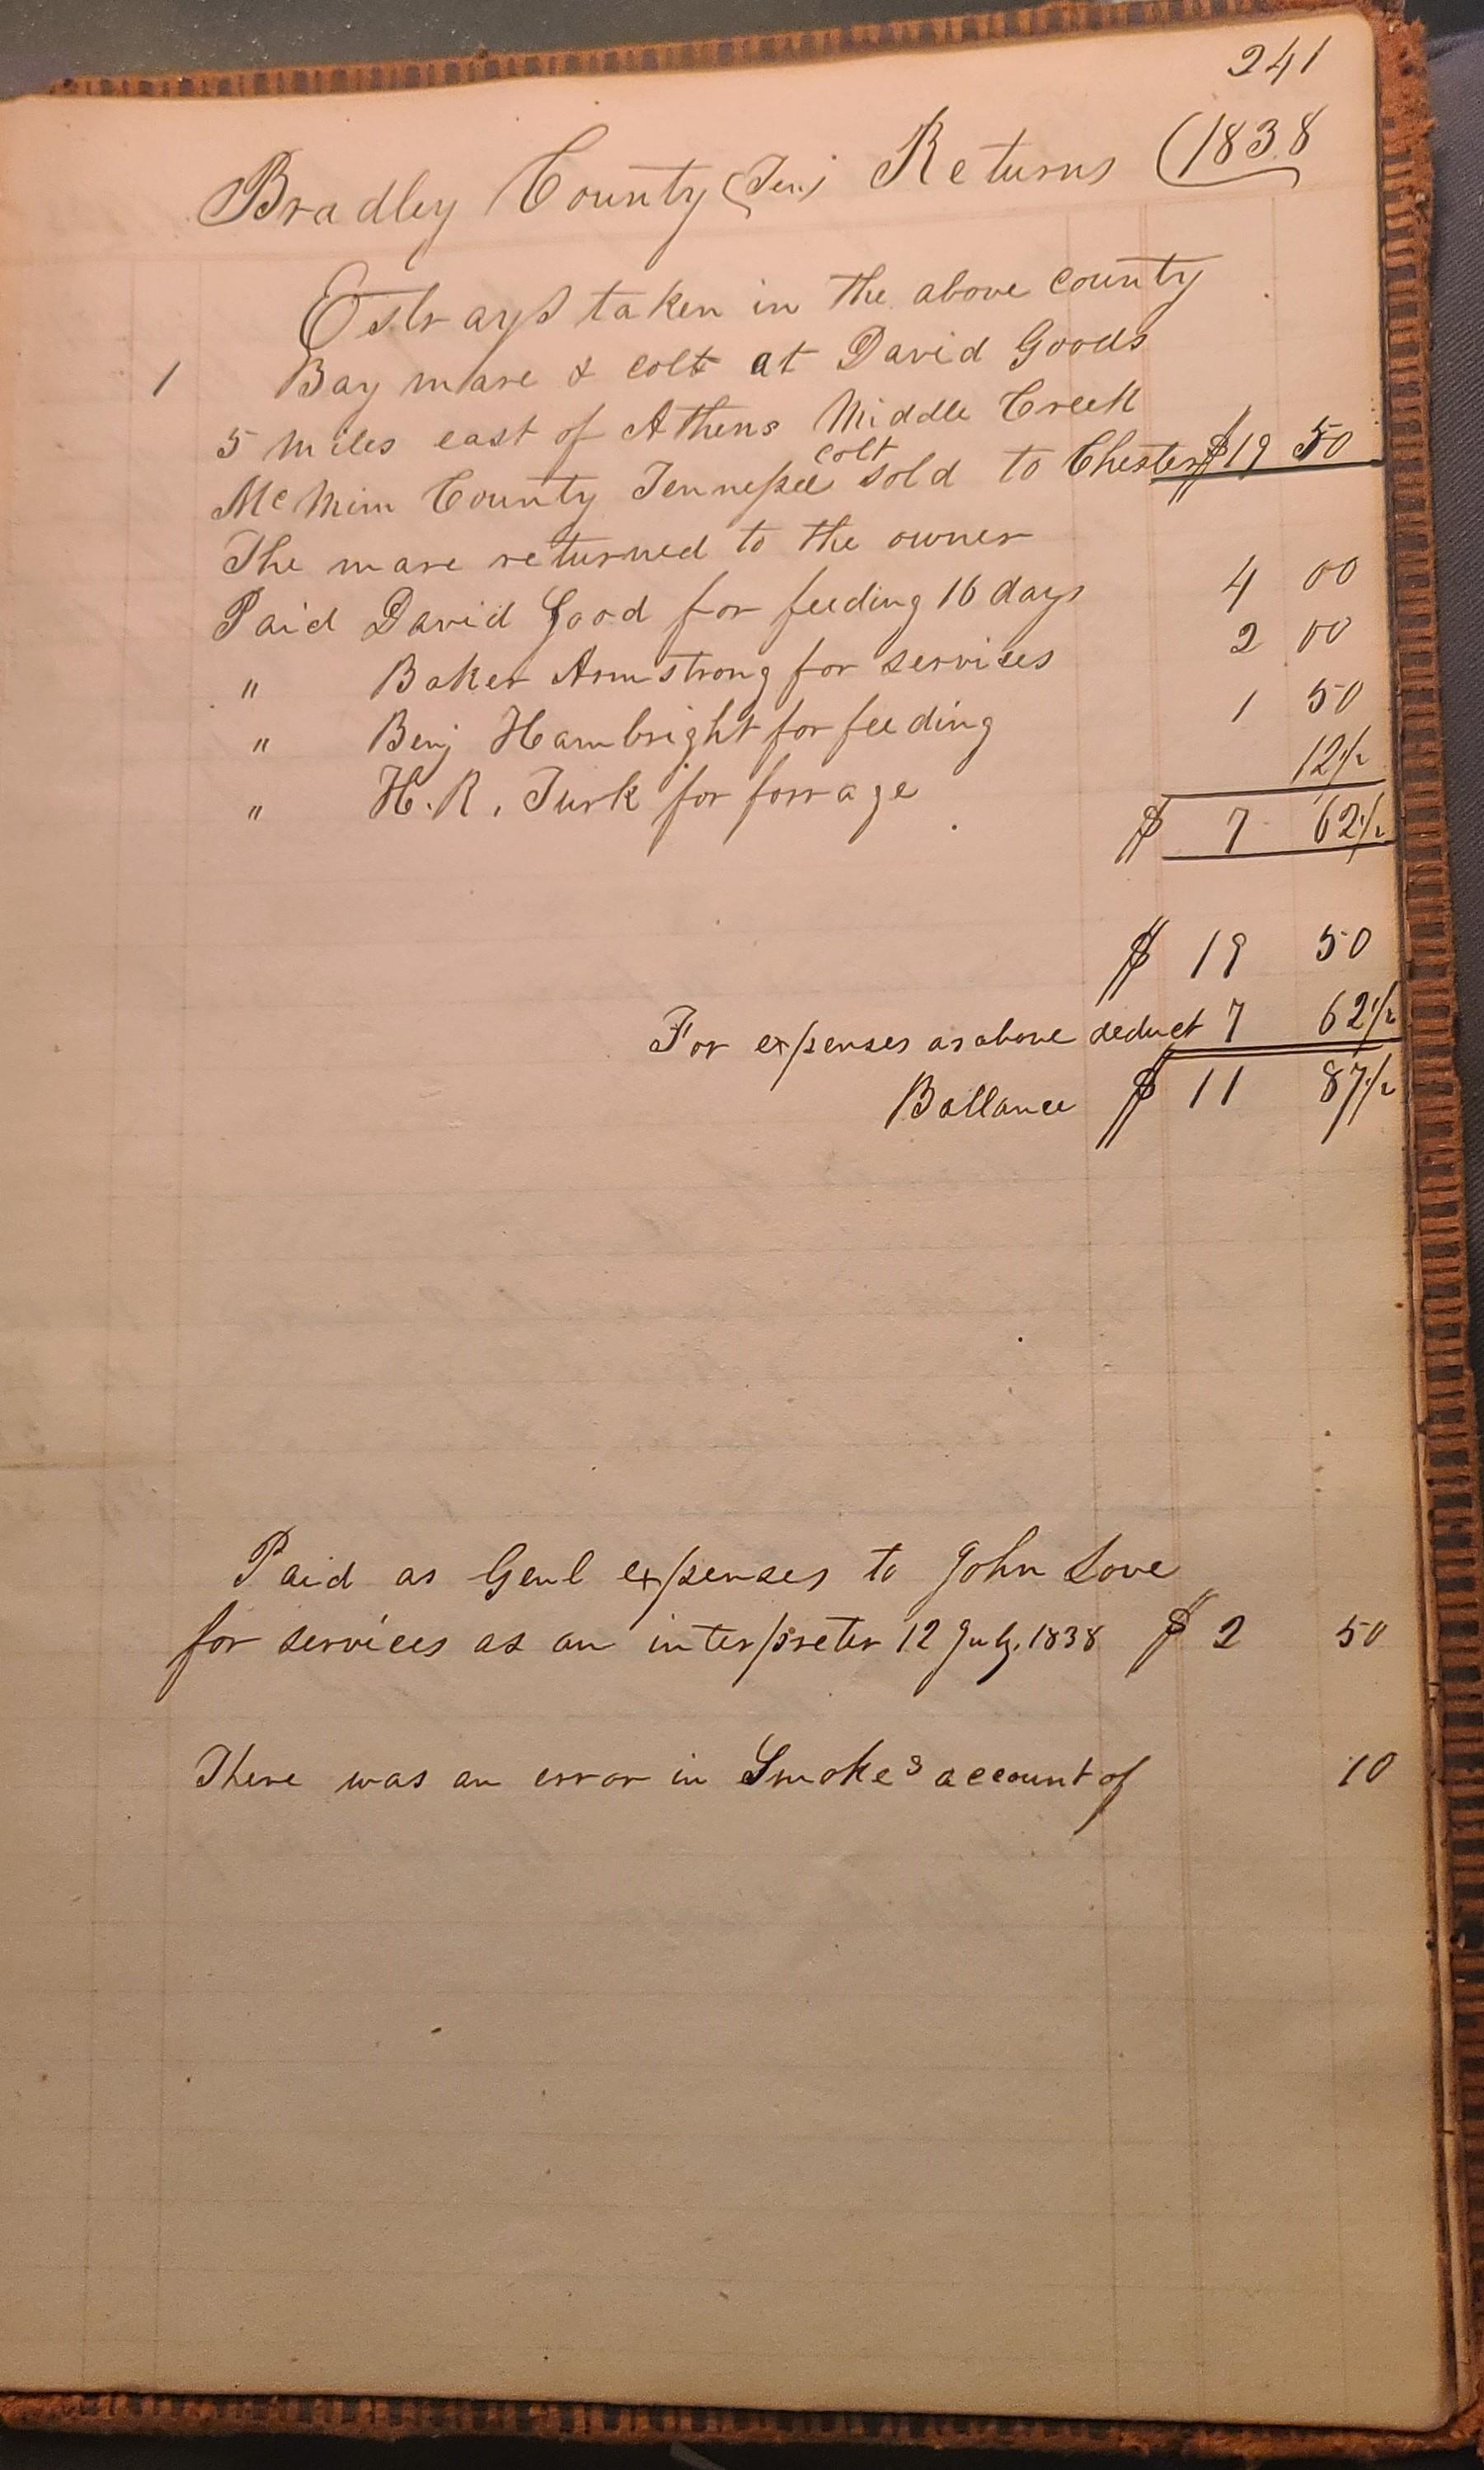 241
Bradley County (Ten) Returns (1838
Estrays taken in the above county
1 Bay mare & colt at David Goods
5 miles east of Athens Middle Creek
colt
McMinn County Tennessee sold to Chester $19 50
The mare returned to the owner
Paid David Good for feeding 16 days 4 00
" Baker Armstrong for services 2 00
" Benj Hambright for feeding 1 50
" H. R. Turk for forrage 12 1/2
$ 7 62 1/2
$ 19 50
For expenses as above deduct 7 62 1/2
Ballance $ 11 87 1/2
Paid as Genl expenses to John Love
for services as an interpreter 12 July. 1838 $ 2 50
There was an error in Smokes account of 10